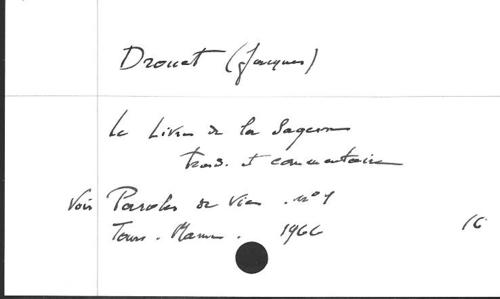 Drouet (Jacques)
Le Livre de la Sagesse
trad. et commentaire
Voir Paroles de Vie . n° 1
Tours . Mame . 1966 16